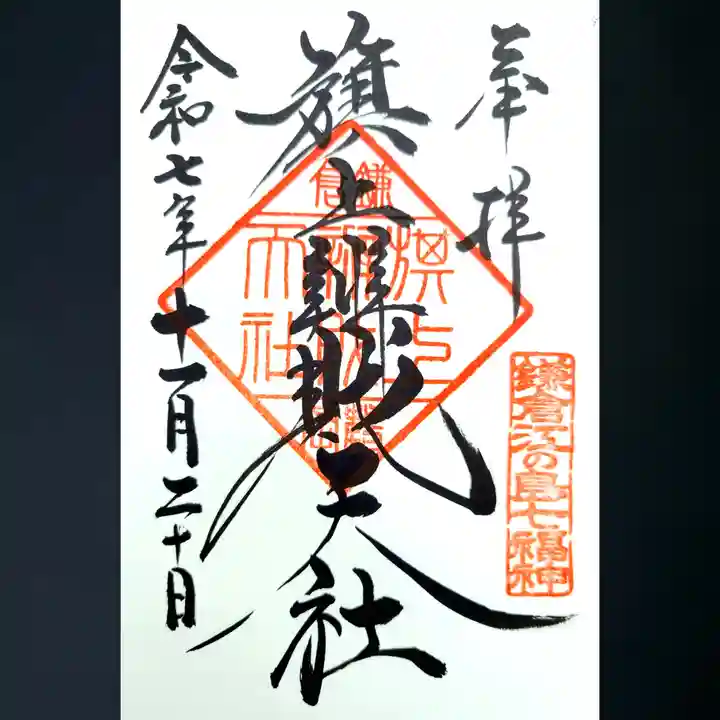 奉拝
鎌倉江の島七福神
旗上辯財天社
鎌倉
旗上
辯財
天社
令和七年十一月二十日